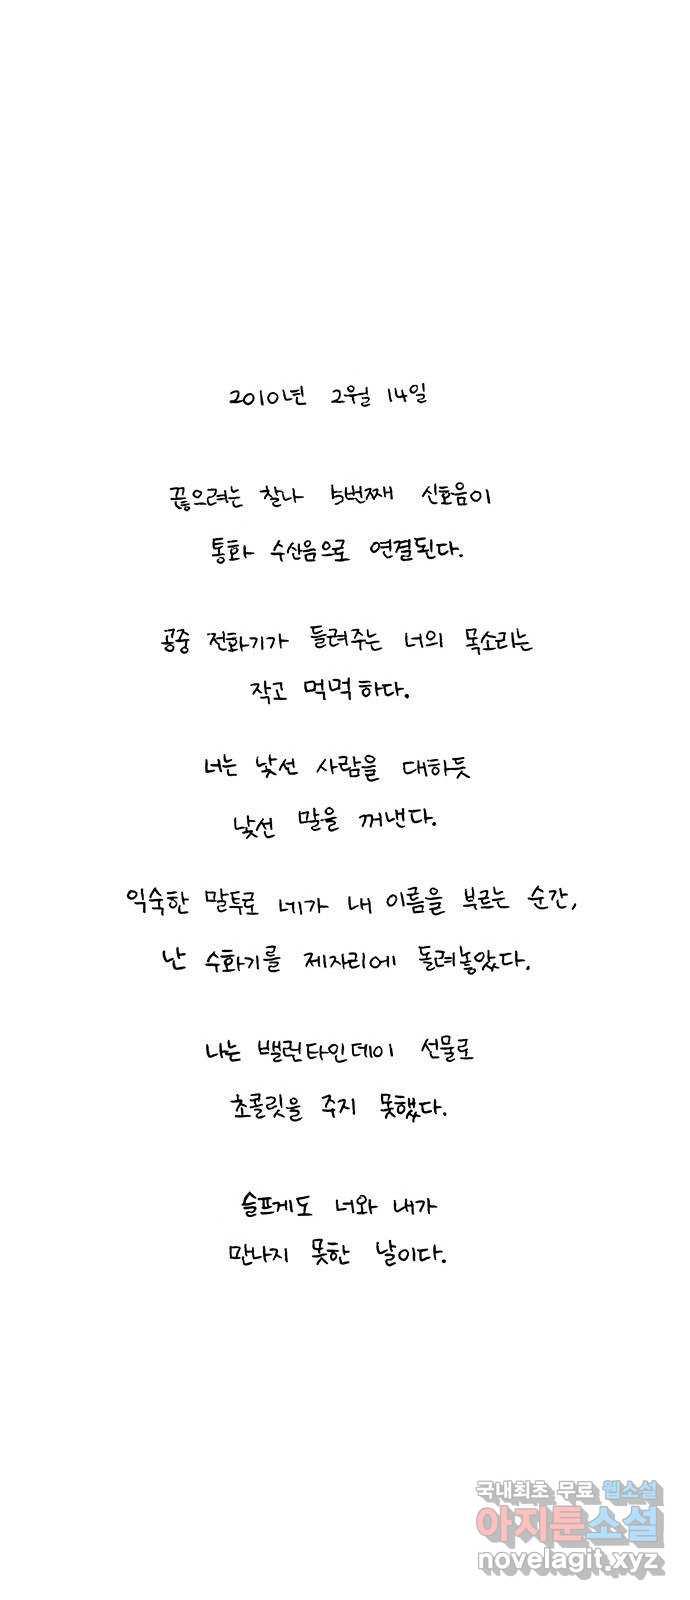 2010년 2월 14일
끊으려는 찰나 5번째 신호음이
통화 수신음으로 연결된다.
공중 전화기가 들려주는 너의 목소리는
작고 먹먹하다.
너는 낯선 사람을 대하듯
낯선 말을 꺼낸다.
익숙한 말투로 네가 내 이름을 부르는 순간,
난 수화기를 제자리에 돌려놓았다.
나는 밸런타인데이 선물로
초콜릿을 주지 못했다.
슬프게도 너와 내가
만나지 못한 날이다.
국내최초 무료 웹소설
아지툰소설
novelagit.xyz